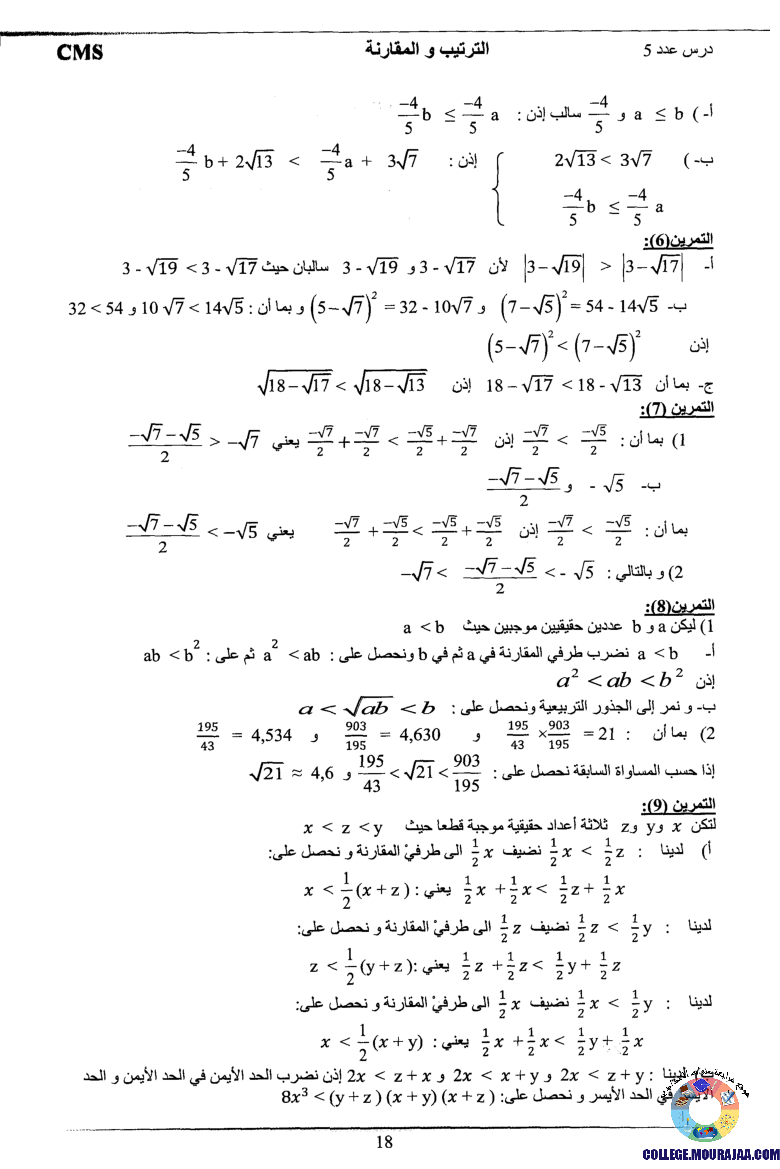 درس عدد 5 الترتيب و المقارنة CMS
أ- ) a ≤ b و −4/5 سالب إذن : −4/5 b ≤ −4/5 a
ب- ) 2√13 < 3√7 إذن : −4/5 b + 2√13 < −4/5 a + 3√7
−4/5 b ≤ −4/5 a
التمرين(6):
أ- |3−√19| > |3−√17| لأن 3 - √17 و 3 - √19 سالبان حيث 3 - √19 < 3 - √17
ب- (7−√5)² = 54 - 14√5 و (5−√7)² = 32 - 10√7 و بما أن : 10√7 < 14√5 و 32 < 54
إذن (5−√7)² < (7−√5)²
ج- بما أن 18 − √17 < 18 - √13 إذن √(18−√17) < √(18−√13)
التمرين (7):
1) بما أن : −√7/2 < −√5/2 إذن −√7/2 + −√7/2 < −√5/2 + −√7/2 يعني (−√7−√5)/2 > −√7
ب- - √5 و (−√7−√5)/2
بما أن : −√7/2 < −√5/2 إذن −√7/2 + −√5/2 < −√5/2 + −√5/2 يعني (−√7−√5)/2 < −√5
2) و بالتالي : −√7 < (−√7−√5)/2 < - √5
التمرين(8):
1) ليكن a و b عددين حقيقيين موجبين حيث a < b
أ- a < b نضرب طرفي المقارنة في a ثم في b ونحصل على : a² < ab ثم على : ab < b²
إذن a² < ab < b²
ب- و نمر إلى الجذور التربيعية ونحصل على : a < √ab < b
2) بما أن : 195/43 × 903/195 = 21 و 903/195 = 4,630 و 195/43 = 4,534
إذا حسب المساواة السابقة نحصل على : 195/43 < √21 < 903/195 و √21 ≈ 4,6
التمرين (9):
لتكن x و y و z ثلاثة أعداد حقيقية موجبة قطعا حيث x < z < y
أ) لدينا : 1/2 x < 1/2 z نضيف 1/2 x الى طرفيْ المقارنة و نحصل على:
1/2 x + 1/2 x < 1/2 z + 1/2 x يعني : x < 1/2 (x + z)
لدينا : 1/2 z < 1/2 y نضيف 1/2 z الى طرفيْ المقارنة و نحصل على:
1/2 z + 1/2 z < 1/2 y + 1/2 z يعني : z < 1/2 (y + z)
لدينا : 1/2 x < 1/2 y نضيف 1/2 x الى طرفيْ المقارنة و نحصل على:
1/2 x + 1/2 x < 1/2 y + 1/2 x يعني : x < 1/2 (x + y)
ب) لدينا : 2x < z + y و 2x < x + y و 2x < z + x إذن نضرب الحد الأيمن في الحد الأيمن و الحد
الأيسر في الحد الأيسر و نحصل على: 8x³ < (y + z ) (x + y) (x + z )
18
COLLEGE.MOURAJAA.COM